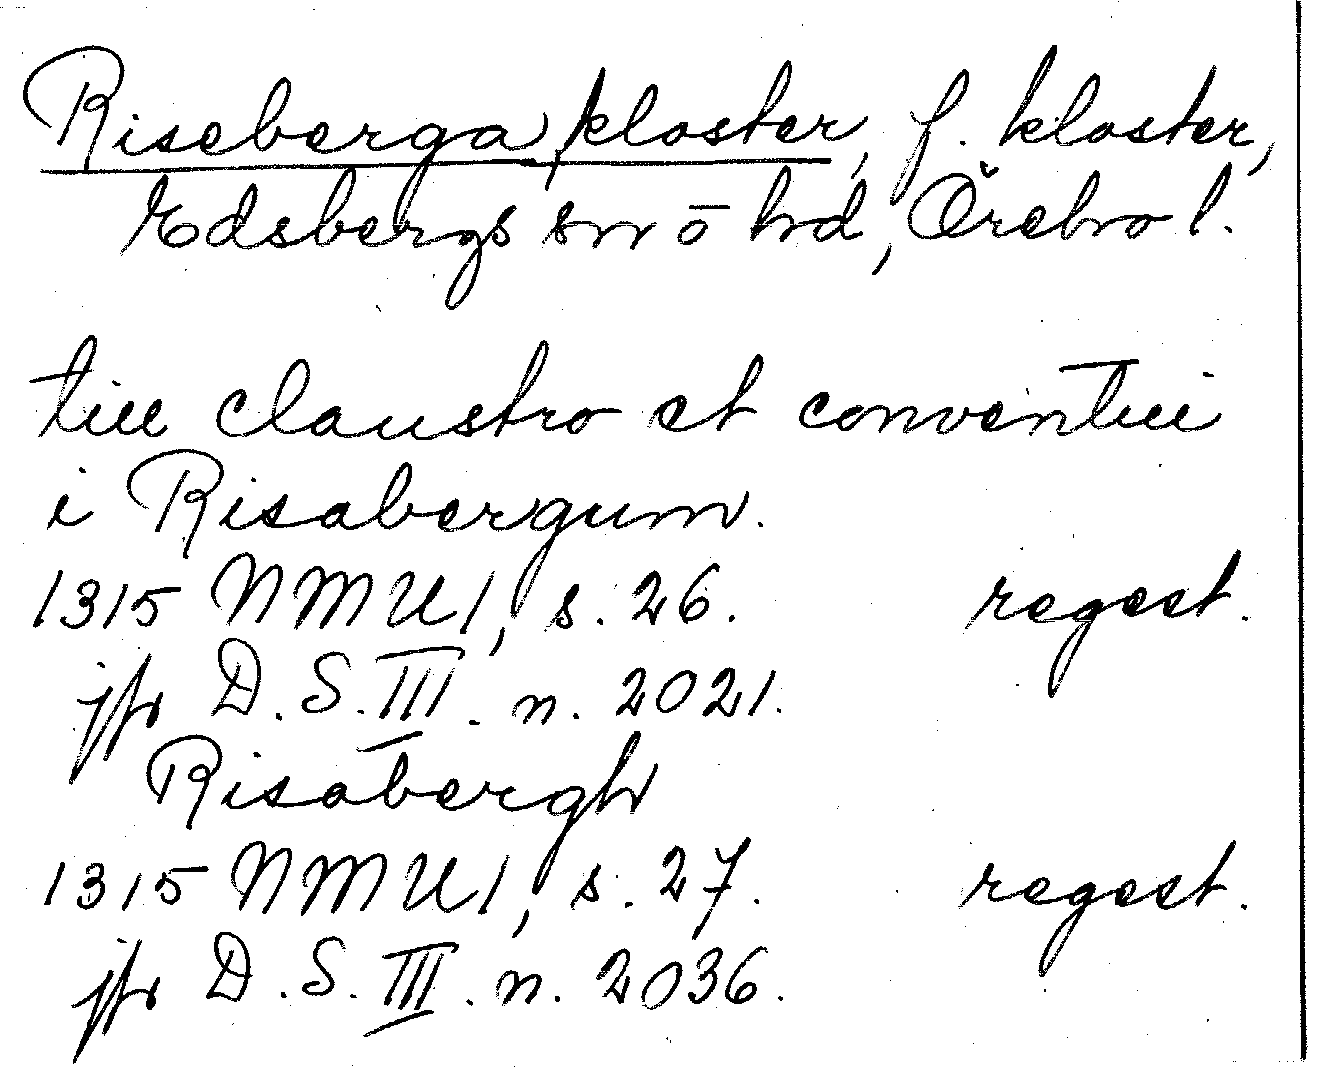 Riseberga kloster, f. kloster,
Edsbergs sn o hd, Örebro l.
till claustro et conventui
i Risabergum.
1315 NMU 1, s. 26. regest.
jfr D.S. III. n. 2021.
Risabergh
1315 NMU 1, s. 27. regest.
jfr D.S. III. n. 2036.